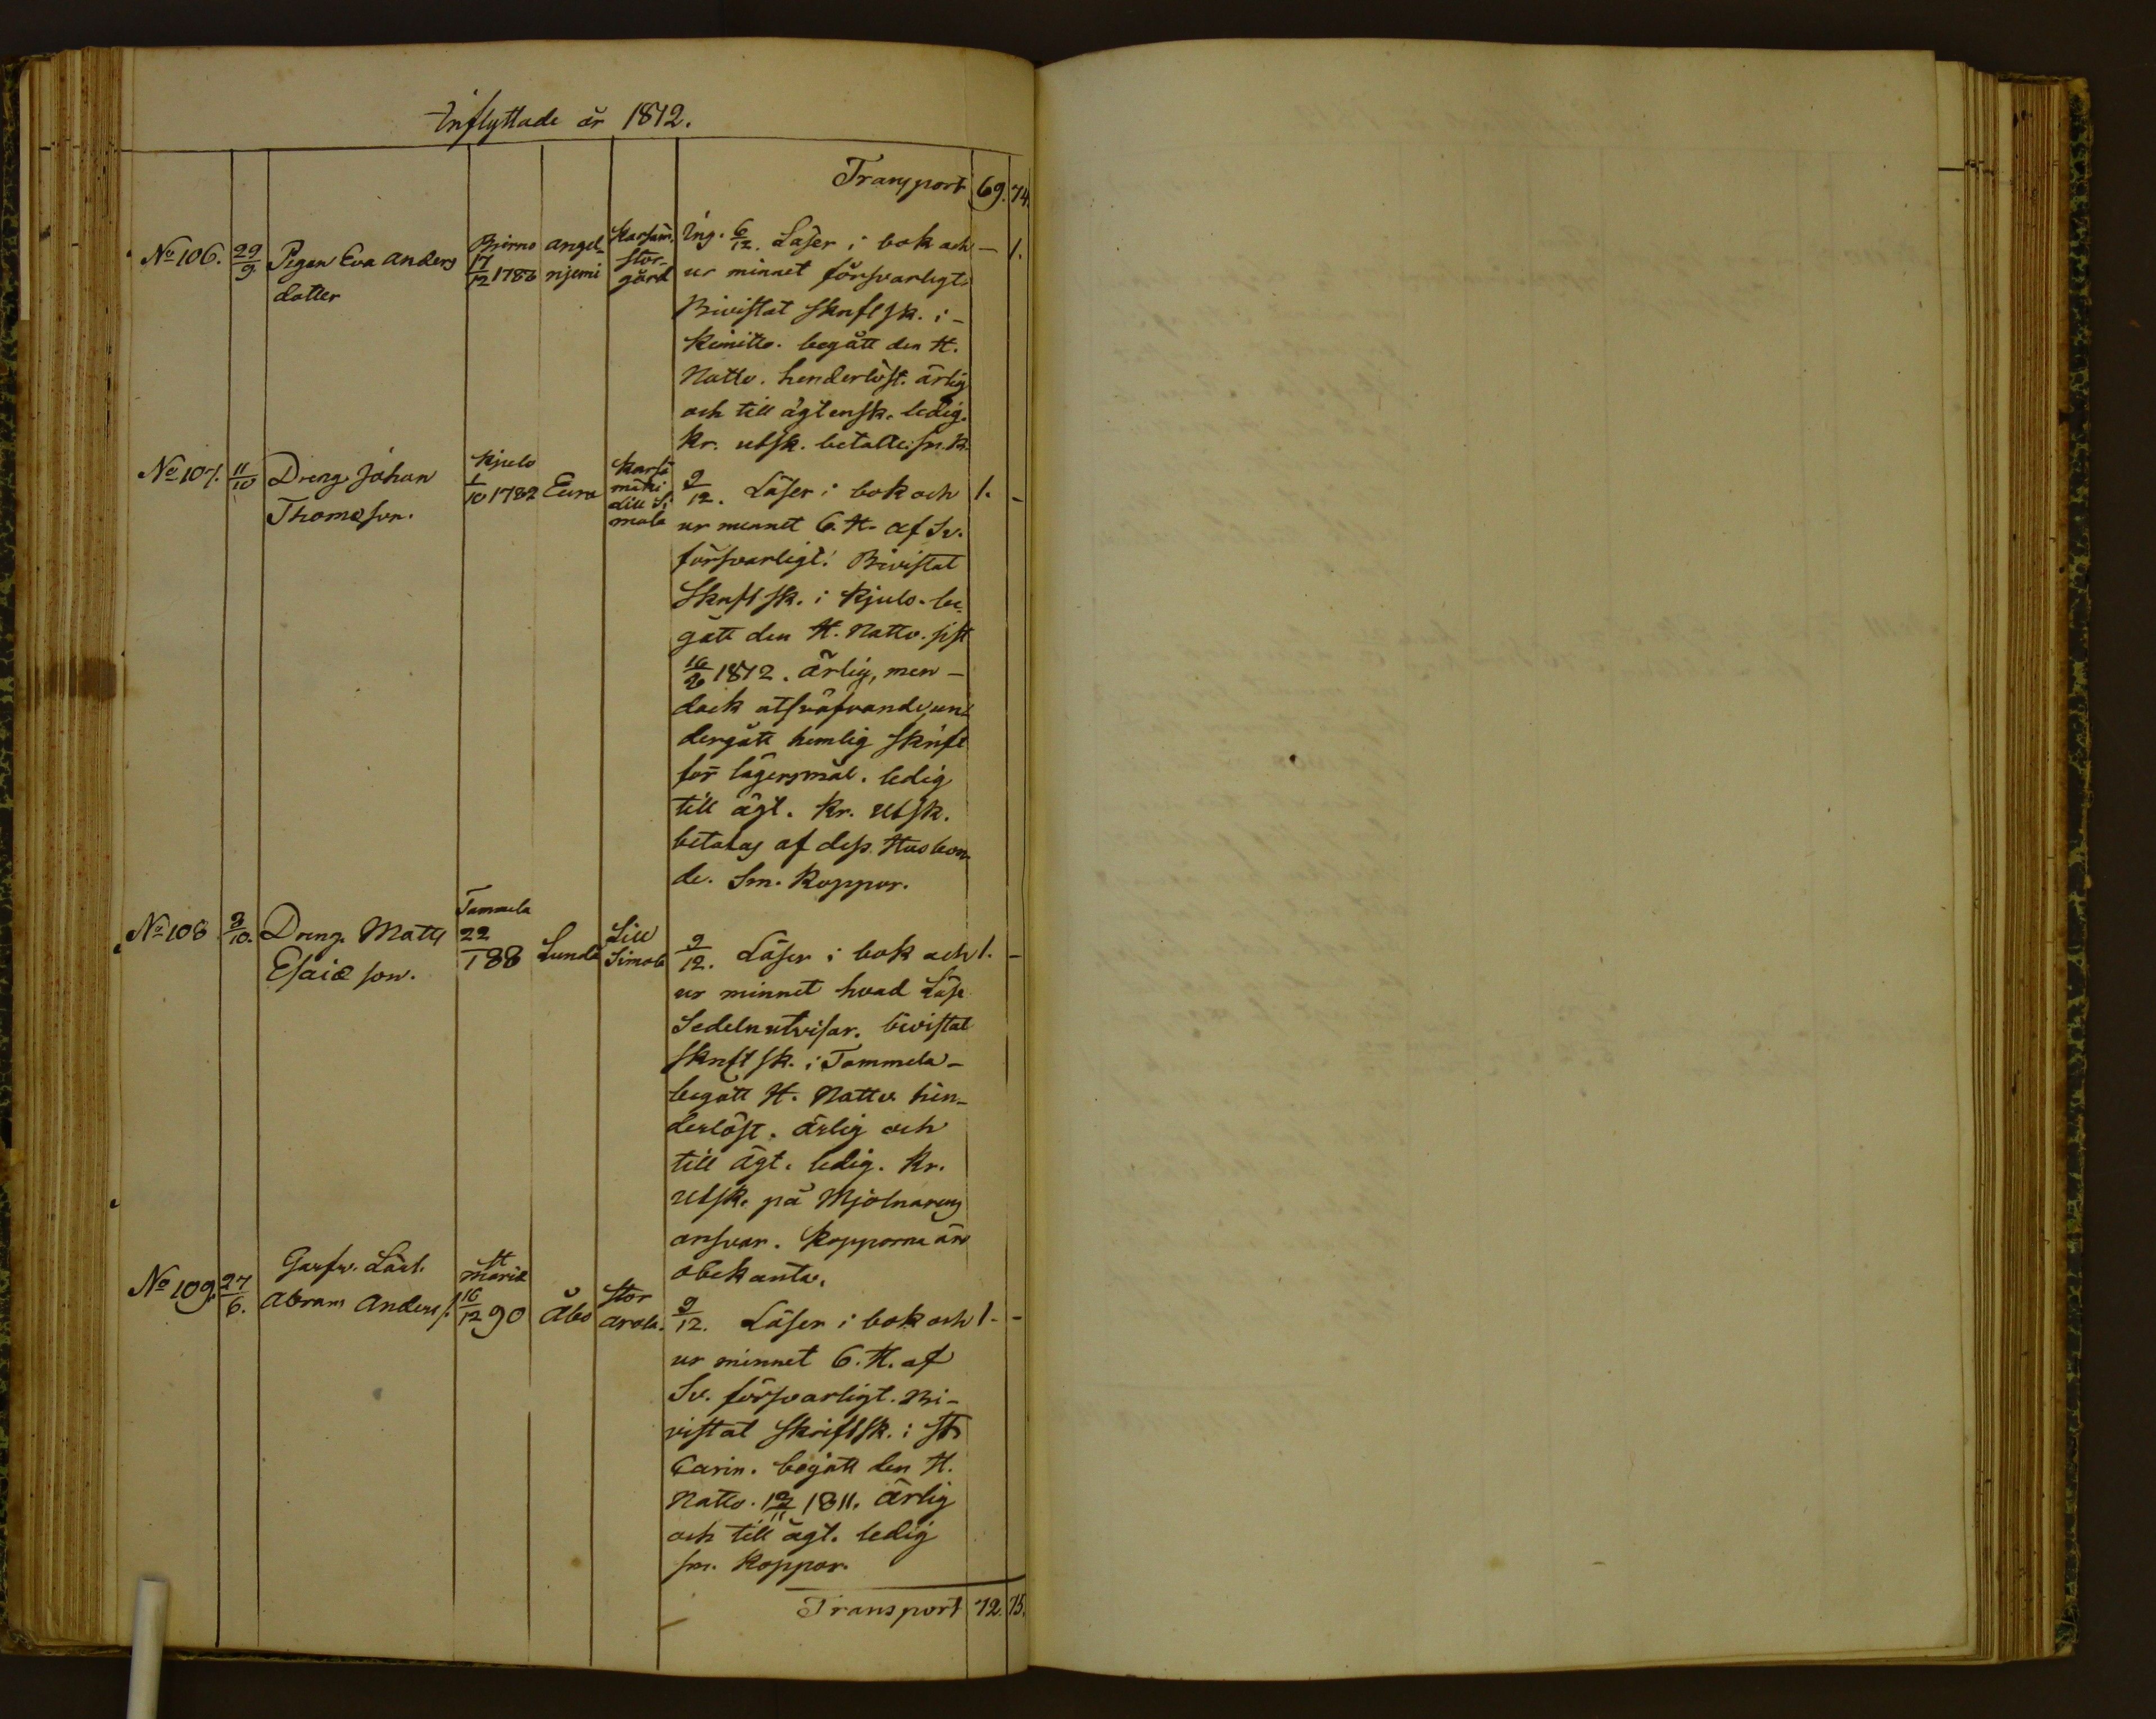 Inflyttade år 1812.
Transport 69. 74.
No 106. 29/9 Pigan Eva Anders dotter Bjerno 17/12 1786 Angel-njemi Karsäm. Stor-gård
Ing. 6/12. Läser i bok och — 1.
ur minnet försvarligt.
Bivistat Skriftsk. i
Kimitto. begått den H.
Nattv. henderlöst. ärlig
och till ägtensk. ledig.
Kr. utsk. betalte. sm. K.
No 107. 11/10 Dreng Johan Thomæson. Kjulo 1/10 1782 Eura Karsä mäki Lill Si mala
9/12. Läser i bok och 1. -
ur minnet 6. H. af Sv.
försvarligt. Bivistat
Skriftsk. i Kjulo. be-
gått den H. Nattv. sist
16/2 1812. ärlig, men
dock utsväfvande, un-
dergått hemlig skrift
för lägersmål. ledig
till ägt. Kr. Utsk.
betalas af dess Husbon-
de. Sm. Koppor.
No 108 3/10. Dreng. Matts Esaiæ son. Tammela 22/1 88 Sunda Lill Simala
9/12. Läser i bok och 1. -
ur minnet hvad Läse
Sedeln utvisar. bivistat
Skriftsk. i Tammela
begått H. Nattv. hin-
derlöst. ärlig och
till ägt. ledig. Kr.
Utsk. på Mjölnarens
ansvar. Kopporne äro
obekanta.
No 109. 27/6. Garfv. Lärl. Abram Anders s. St Mariæ 16/12 90 Åbo Stor Arola.
9/12. Läser i bok och 1. -
ur minnet 6. H. af
Sv. försvarligt. Bi-
vistat Skriftsk. i St
Carin. begått den H.
Nattv. 12/11 1811. ärlig
och till ägt. ledig
sm. Koppor.
Transport 72. 75.